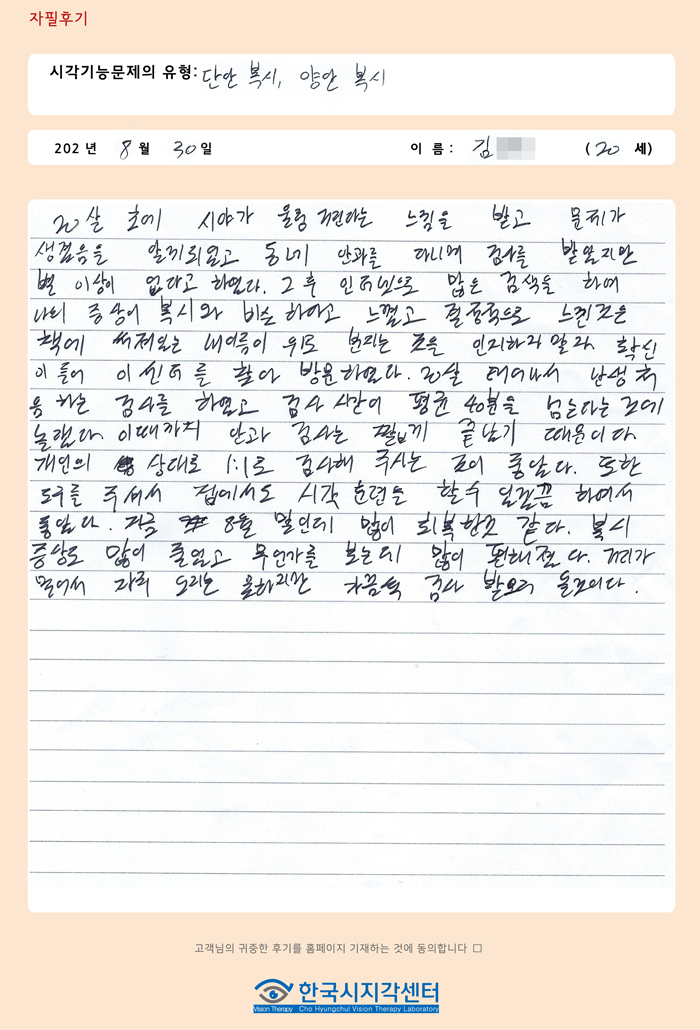 자필후기
시각기능문제의 유형: 단안 복시, 양안 복시
202 년 8 월 30 일 이 름 : 김 ( 20 세)
20살 초에 시야가 울렁거린다는 느낌을 받고 문제가
생겼음을 알게되었고 동네 안과를 다니며 검사를 받았지만
별 이상이 없다고 하였다. 그 후 인터넷으로 많은 검색을 하여
나의 증상이 복시와 비슷하다고 느꼈고 결정적으로 느낀것은
책에 써져있는 내이름이 위로 번지는 것을 인지하고 말라 확신
이 들어 이 센터를 찾아 방문하였다. 20살 태어나서 난생 처
음 하는 검사를 하였고 검사 시간이 평균 40분을 넘는다는 것에
놀랬다 이때까지 안과 검사는 짧게 끝났기 때문이다
개인의 상대로 1:1로 검사해 주시는 것이 좋았다. 또한
도구를 주셔서 집에서도 시각 훈련을 할수 있게끔 하여서
좋았다. 지금 8월 말인데 많이 회복한것 같다. 복시
증상도 많이 줄었고 무언가를 보는데 많이 편해졌다. 거리가
멀어서 자주 오지는 못하지만 가끔씩 검사 받으러 올것이다.
고객님의 귀중한 후기를 홈페이지 기재하는 것에 동의합니다 □
한국시지각센터
Vision Therapy Cho Hyungchul Vision Therapy Laboratory